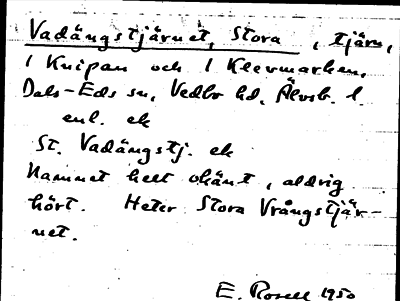 Vadängstjärnet, Stora, tjärn,
1 Knipan och 1 Klevmarken,
Dals-Eds sn, Vedbo hd, Älvsb. l
enl. ek
St. Vadängstj. ek
Namnet helt okänt, aldrig
hört. Heter Stora Vrångstjär-
net.
E. Rosell 1950